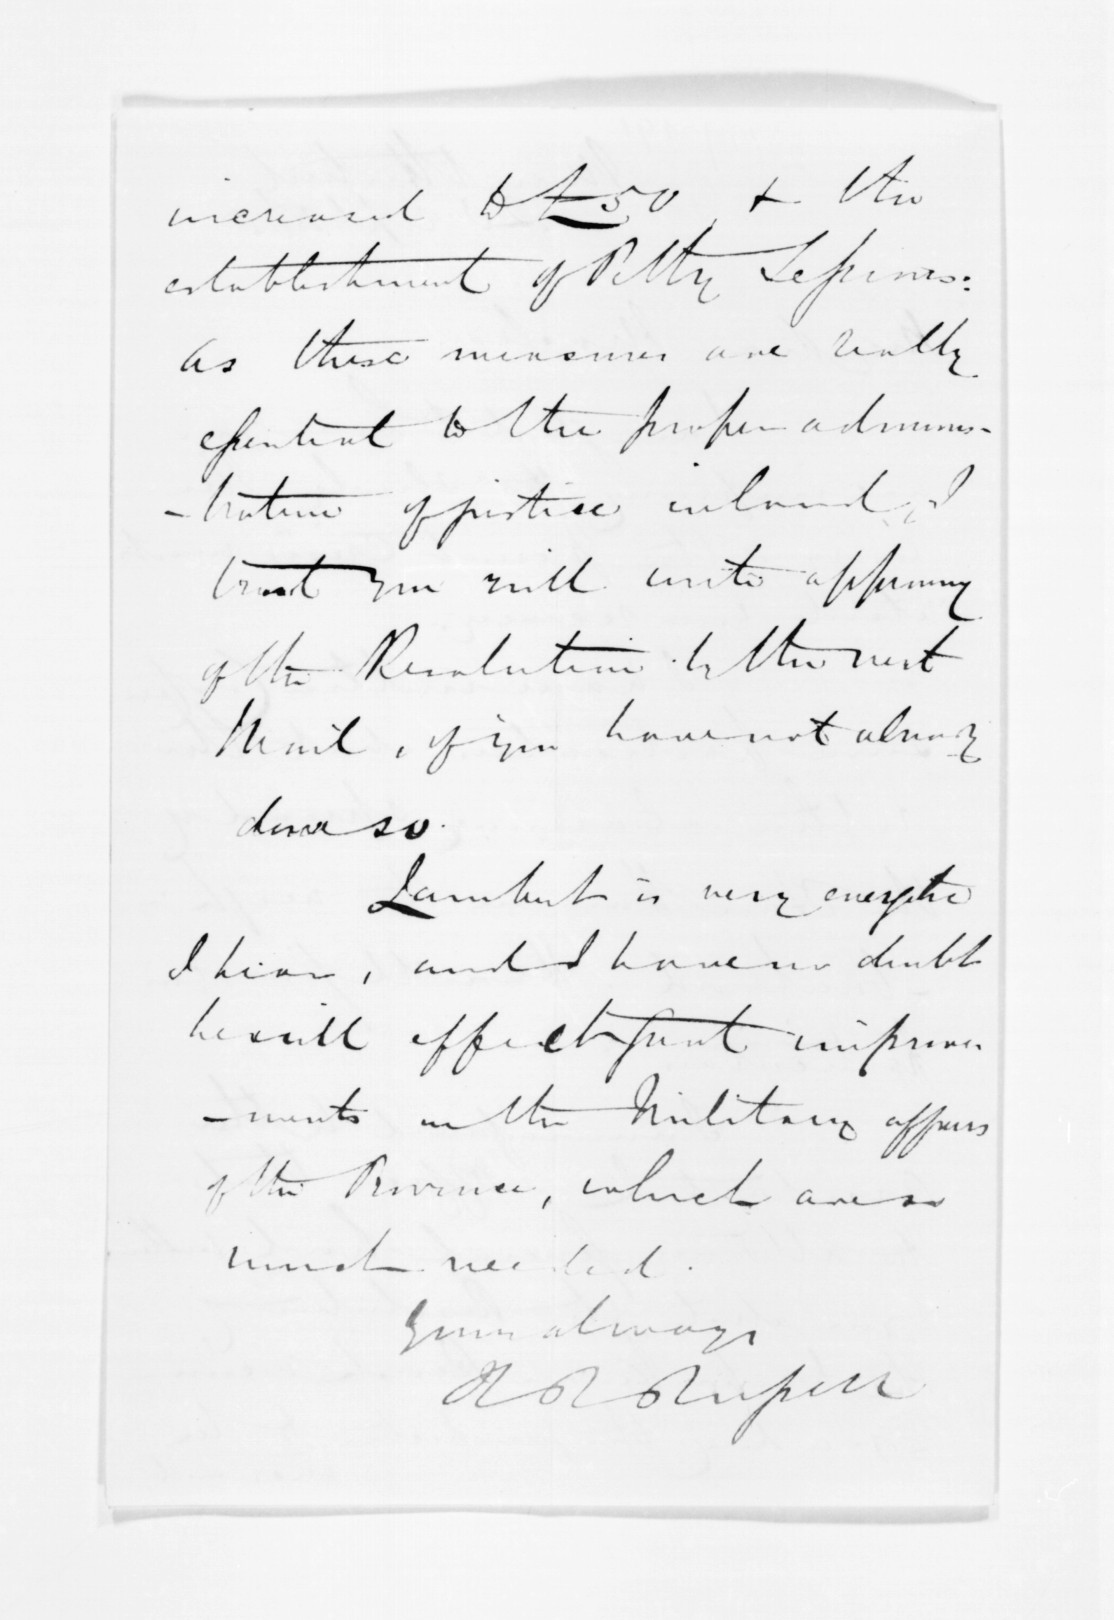 increased to £50, & the
establishment of Petty Sessions:
as these measures are really
essential to the proper adminis-
-tration of justice inland, I
trust you will write approving
of the Resolution by the next
Mail, if you have not already
done so.
Lambert is very energetic
I hear, and I have no doubt
he will effect great improve
-ments in the Military affairs
of the Province, which are so
much needed.
Yours always
H R Russell